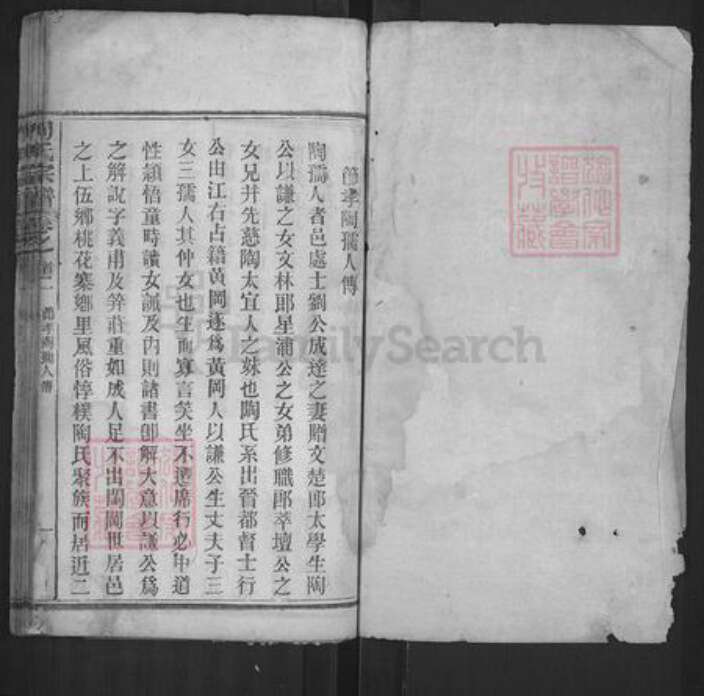 節孝陶孺人傳
陶孺人者邑處士劉公成達之妻贈文楚郎太學生陶
公以謙之女文林郎星浦公之女弟修職郎萃壇公之
女兄幷先慈陶太宜人之妹也陶氏系出晉都督士行
公由江右占籍黃岡遂爲黃岡人以謙公生丈夫子三
女三孺人其仲女也生而寡言笑坐不遷席行必中道
性穎悟童時讀女誡及內則諸書卽解大意以謙公爲
之解說字義甫及笄莊重如成人足不出閨閫世居邑
之上伍鄉桃花寨鄉里風俗惇樸陶氏聚族而居近二
氏宗譜 卷之首二 節孝陶孺人傳 一
FamilySearch